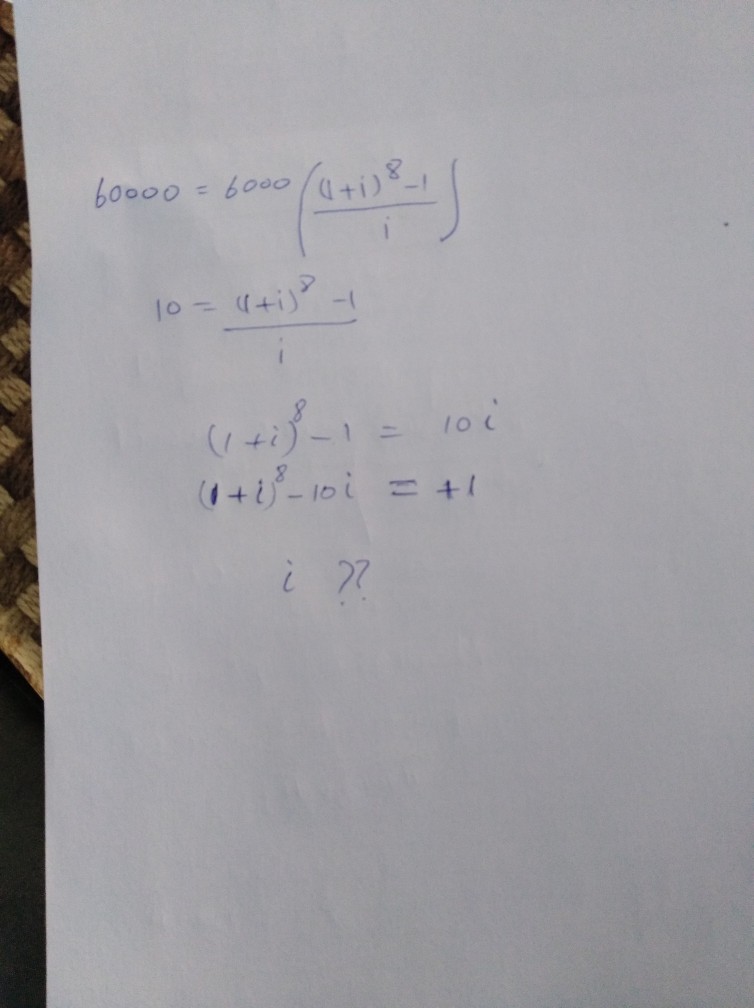 60000 = 6000 ( (1+i)^8 - 1 / i )
10 = (1+i)^8 - 1 / i
(1+i)^8 - 1 = 10i
(1+i)^8 - 10i = +1
i ??